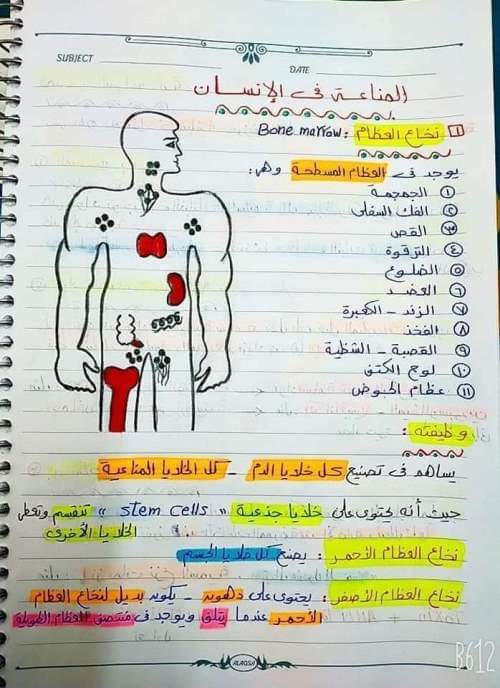 SUBJECT
DATE
المناعة في الإنسان
١ نخاع العظام : Bone marrow
يوجد في العظام المسطحة وهى :
١ الجمجمة
٢ الفك السفلى
٣ القص
٤ الترقوة
٥ الضلوع
٦ العضد
٧ الزند - الكعبرة
٨ الفخذ
٩ القصبة - الشظية
١٠ لوح الكتف
١١ عظام الحوض
وظيفته :
يساهم في تصنيع كل خلايا الدم - كل الخلايا المناعية
حيث أنه يحتوى على خلايا جذعية « stem cells » تنقسم وتعطى
الخلايا الأخرى
نخاع العظام الأحمر : يصنع كل خلايا الجسم
نخاع العظام الأصفر : يحتوى على دهون - يكون بديل لنخاع العظام
الأحمر عندما يتلف ويوجد في منتصف العظام الطويلة
ALAQSA
B612